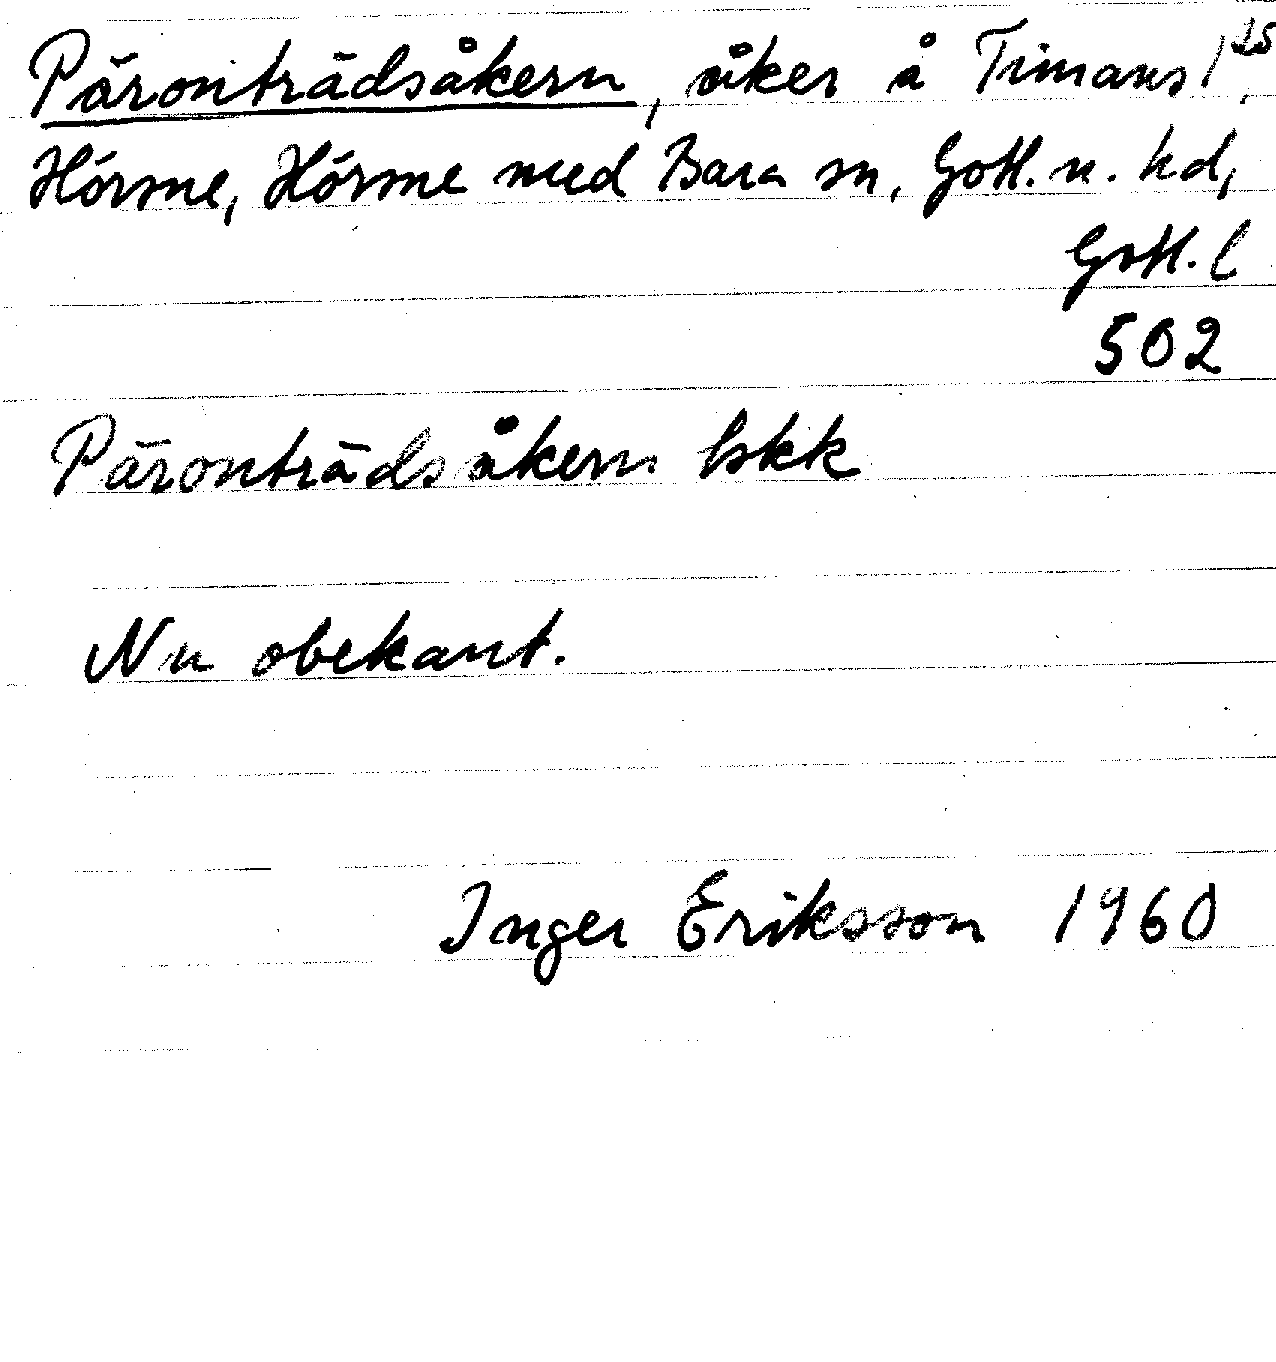 Päronträdsåkern, åker å Timans 1²⁵,
Hörsne, Hörsne med Bara sn, Gotl. n. hd,
Gotl. l
502
Päronträdsåkern bskk
Nu obekant.
Inger Eriksson 1960